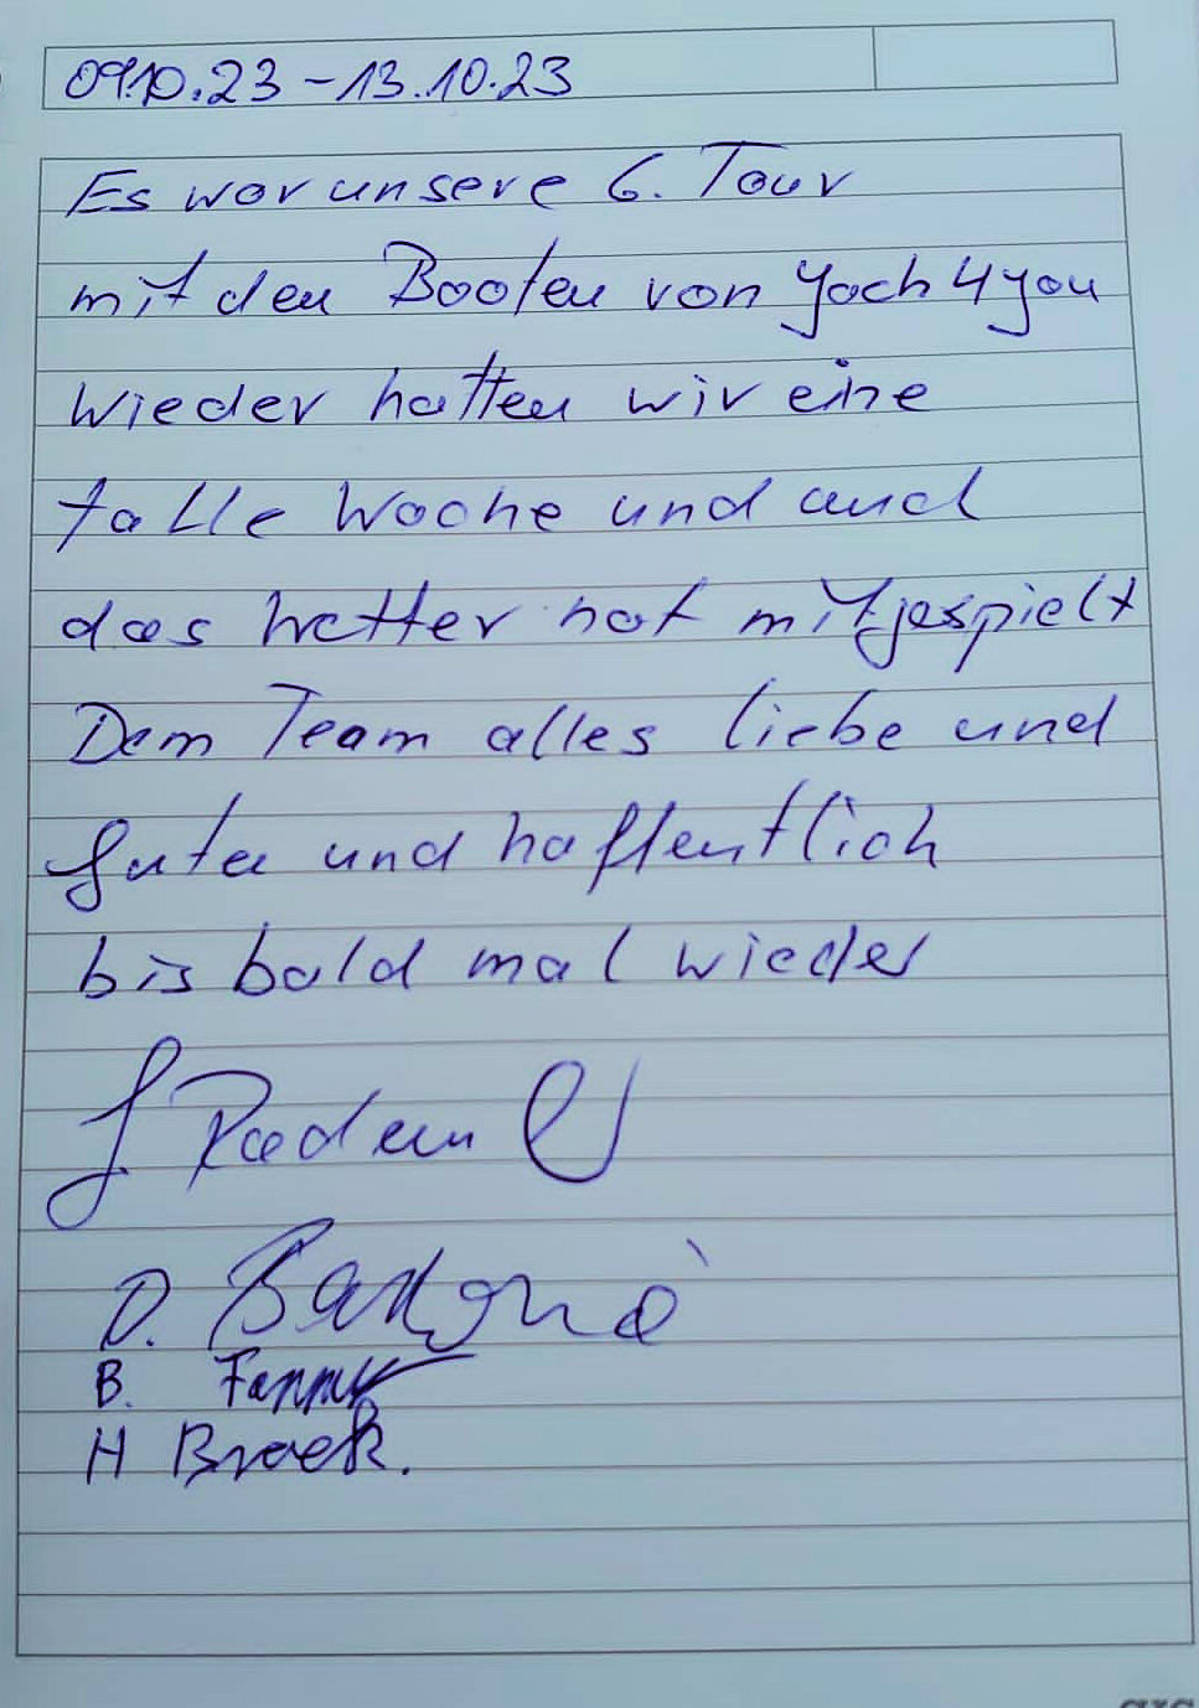 09.10.23 - 13.10.23
Es war unsere 6. Tour
mit den Booten von Yach4you
Wieder hatten wir eine
tolle Woche und auch
das Wetter hat mitgespielt
Dem Team alles liebe und
Gute und hoffentlich
bis bald mal wieder
D.
B. Fanny
H Broek.